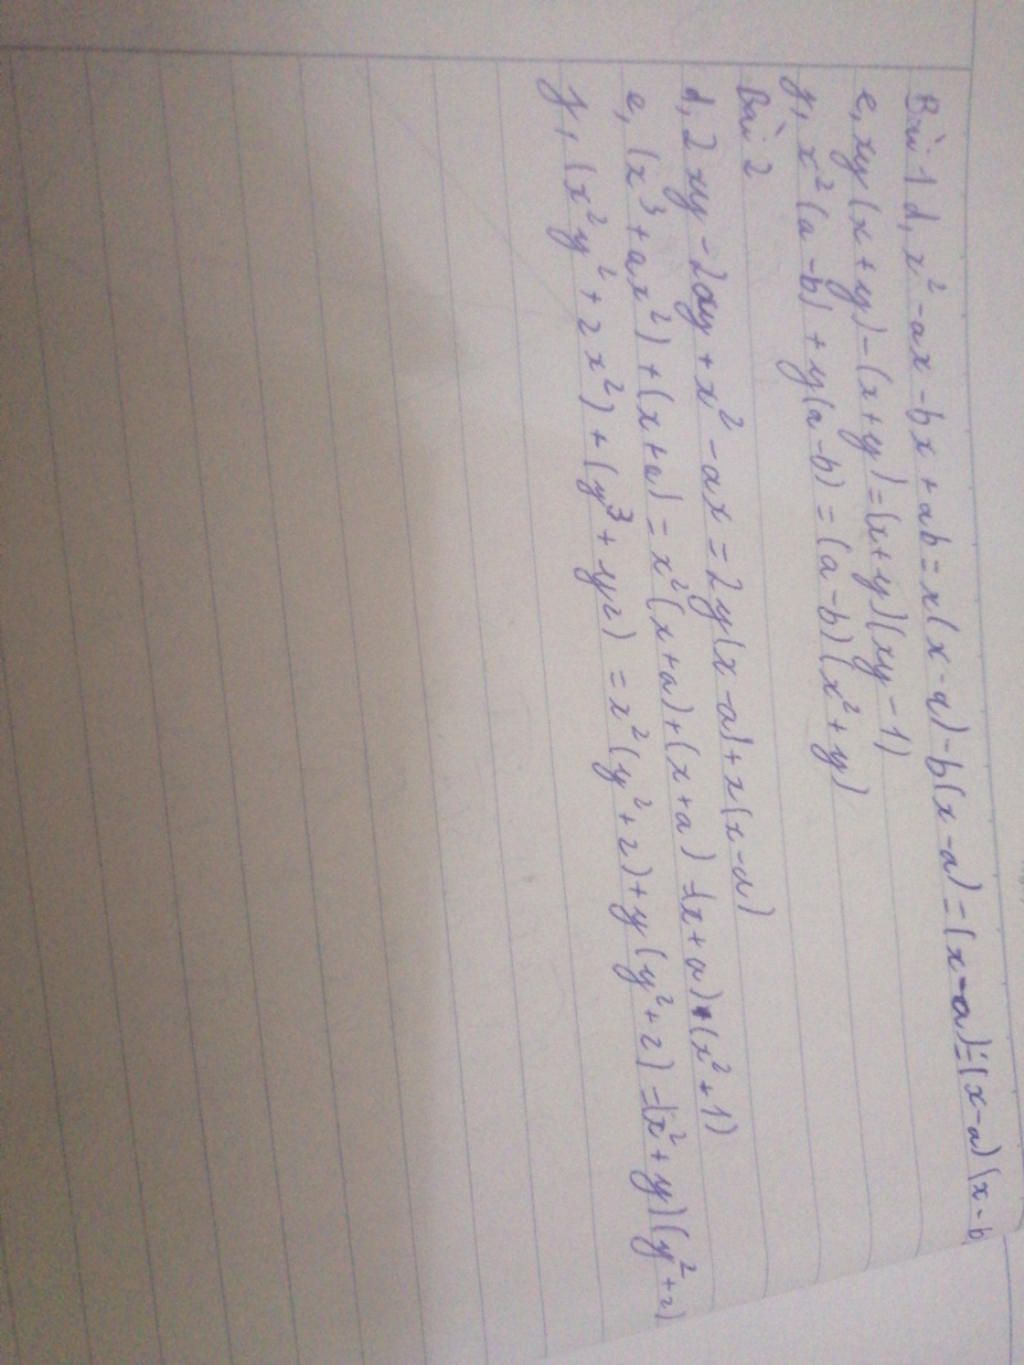 Bài 1 d, x² - ax - bx + ab = x(x - a) - b(x - a) = (x - a) = (x - a)(x - b
e, xy(x + y) - (x + y) = (x + y)(xy - 1)
f, x²(a - b) + y(a - b) = (a - b)(x² + y)
Bài 2
d, 2xy - 2ay + x² - ax = 2y(x - a) + x(x - a)
e, (x³ + ax²) + (x + a) = x²(x + a) + (x + a) = (x + a) + (x² + 1)
f, (x²y² + 2x²) + (y³ + y2) = x²(y² + 2) + y(y² + 2) = (x² + y)(y² + 2)